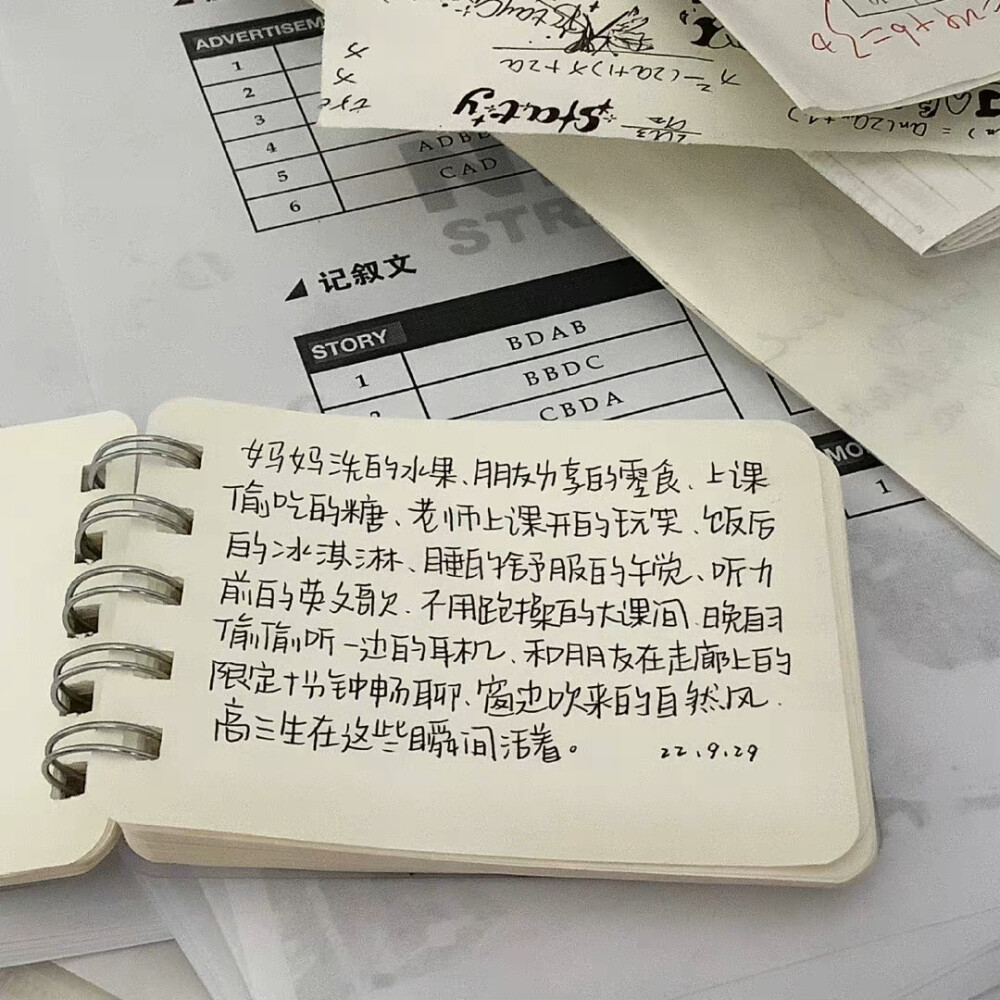 ADVERTISEM
1
2
3
4 ADBE
5 CAD
6
STR
记叙文
STORY BDAB
1 BBDC
CBDA
MO
1
x²-(2a+1)x+2a
Stay
妈妈洗的水果、朋友分享的零食、上课
偷吃的糖、老师上课开的玩笑、饭后
的冰淇淋、睡的舒服的午觉、听力
前的英文歌、不用跑操的大课间、晚自习
偷偷听一边的耳机、和朋友在走廊上的
限定十分钟畅聊、窗边吹来的自然风.
高三生在这些瞬间活着。 22.9.29